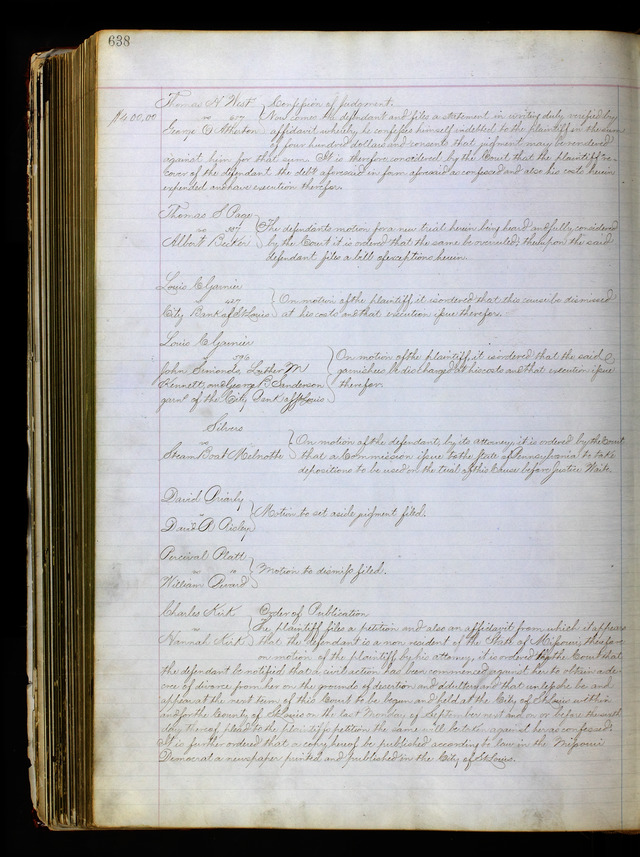 638
Thomas H West } Confession of Judgment.
$400,00 vs 457 } Now comes the defendant and files a statement in writing duly verified by
George O Atherton affidavit whereby he confesses himself indebted to the plaintiff in the sum
of four hundred dollars and consents that judgment may be rendered
against him for that sum. It is therefore considered by the Court that the plaintiff re-
cover of the defendant the debt aforesaid in form aforesaid as confessed and also his costs herein
expended and have execution therefor.
Thomas S. Page
vs 387 } The defendants motion for a new trial herein being heard and fully considered
Albert Becker by the Court it is ordered that the same be overruled thereupon the said
defendant files a bill of exceptions herein.
Louis C Garnier
vs 427 } On motion of the plaintiff it is ordered that this cause be dismissed
City Bank of St Louis at his costs and that execution issue therefor.
Louis C Garnier
vs 376 } On motion of the plaintiff it is ordered that the said
John Simonds, Luther M garnishees be discharged at his costs and that execution issue
Kennett, and George B Sanderson therefor.
garnt of the City Bank of St Louis
Silvers
vs } On motion of the defendant, by its attorney, it is ordered by the Court
Steam Boat Melnotte that a Commission issue to the State of Pennsylvania to take
depositions to be used on the trial of this Cause before Justice Waite.
David
vs } Motion to set aside judgment filed.
David D Risley
Percival Platt
vs } Motion to dismiss filed.
William
Charles Kirk Order of Publication
vs } The plaintiff files a petition and also an affidavit from which it appears
Hannah Kirk that the defendant is a non resident of the State of Missouri; therefore
on motion of the plaintiff by his attorney, it is ordered by the Court that
the defendant be notified that a civil action has been commenced against her to obtain a de-
cree of divorce from her on the grounds of desertion and adultery and that unless she be and
appear at the next term of this Court to be begun and held at the City of St Louis within
and for the County of St Louis on the last Monday of September next and on or before the sixth
day thereof plead to the plaintiffs petition the same will be taken against her as confessed.
It is further ordered that a copy hereof be published according to law in the Missouri
Democrat a newspaper printed and published in the City of St Louis.